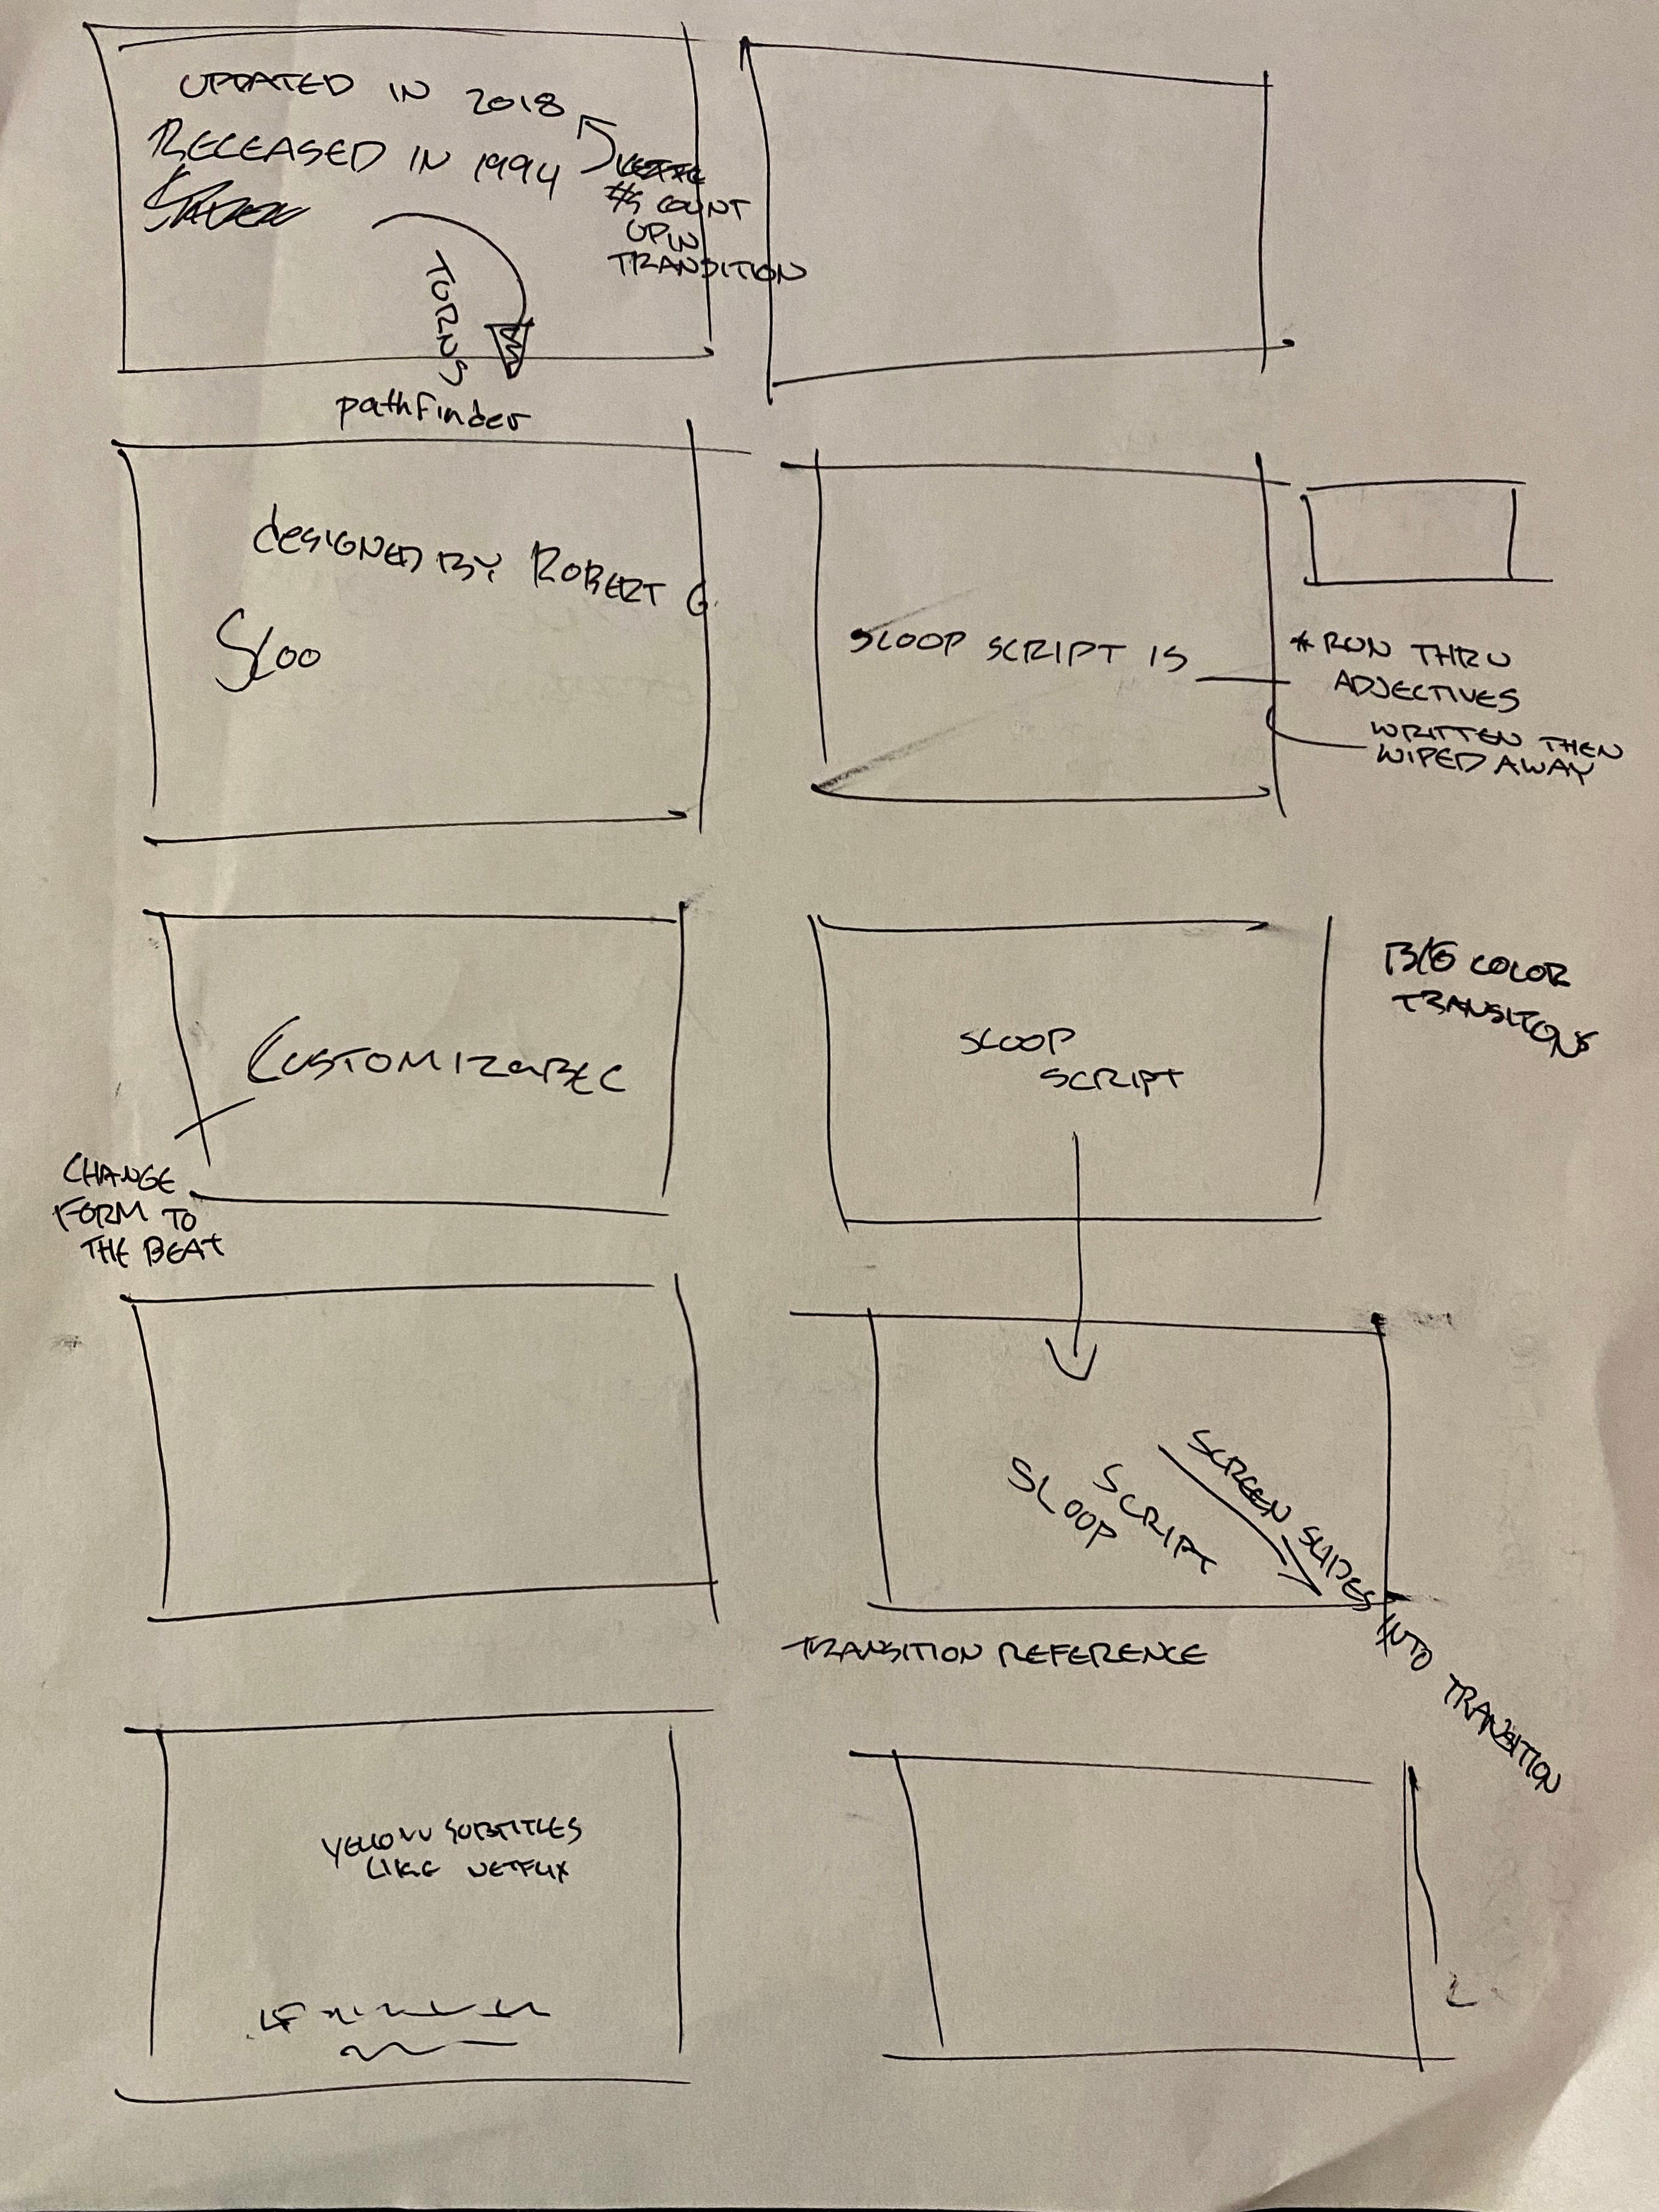 UPDATED IN 2018
RELEASED IN 1994
#S COUNT
UP IN
TRANSITION
TURNS
pathfinder
designed by Robert G.
Sloo
SLOOP SCRIPT IS
* RUN THRU
ADJECTIVES
WRITTEN THEN
WIPED AWAY
CUSTOMIZABLE
CHANGE
FORM TO
THE BEAT
SLOOP
SCRIPT
B/G COLOR
TRANSITIONS
SLOOP
SCRIPT
SCREEN SLIDES INTO TRANSITION
TRANSITION REFERENCE
YELLOW SUBTITLES
LIKE NETFLIX